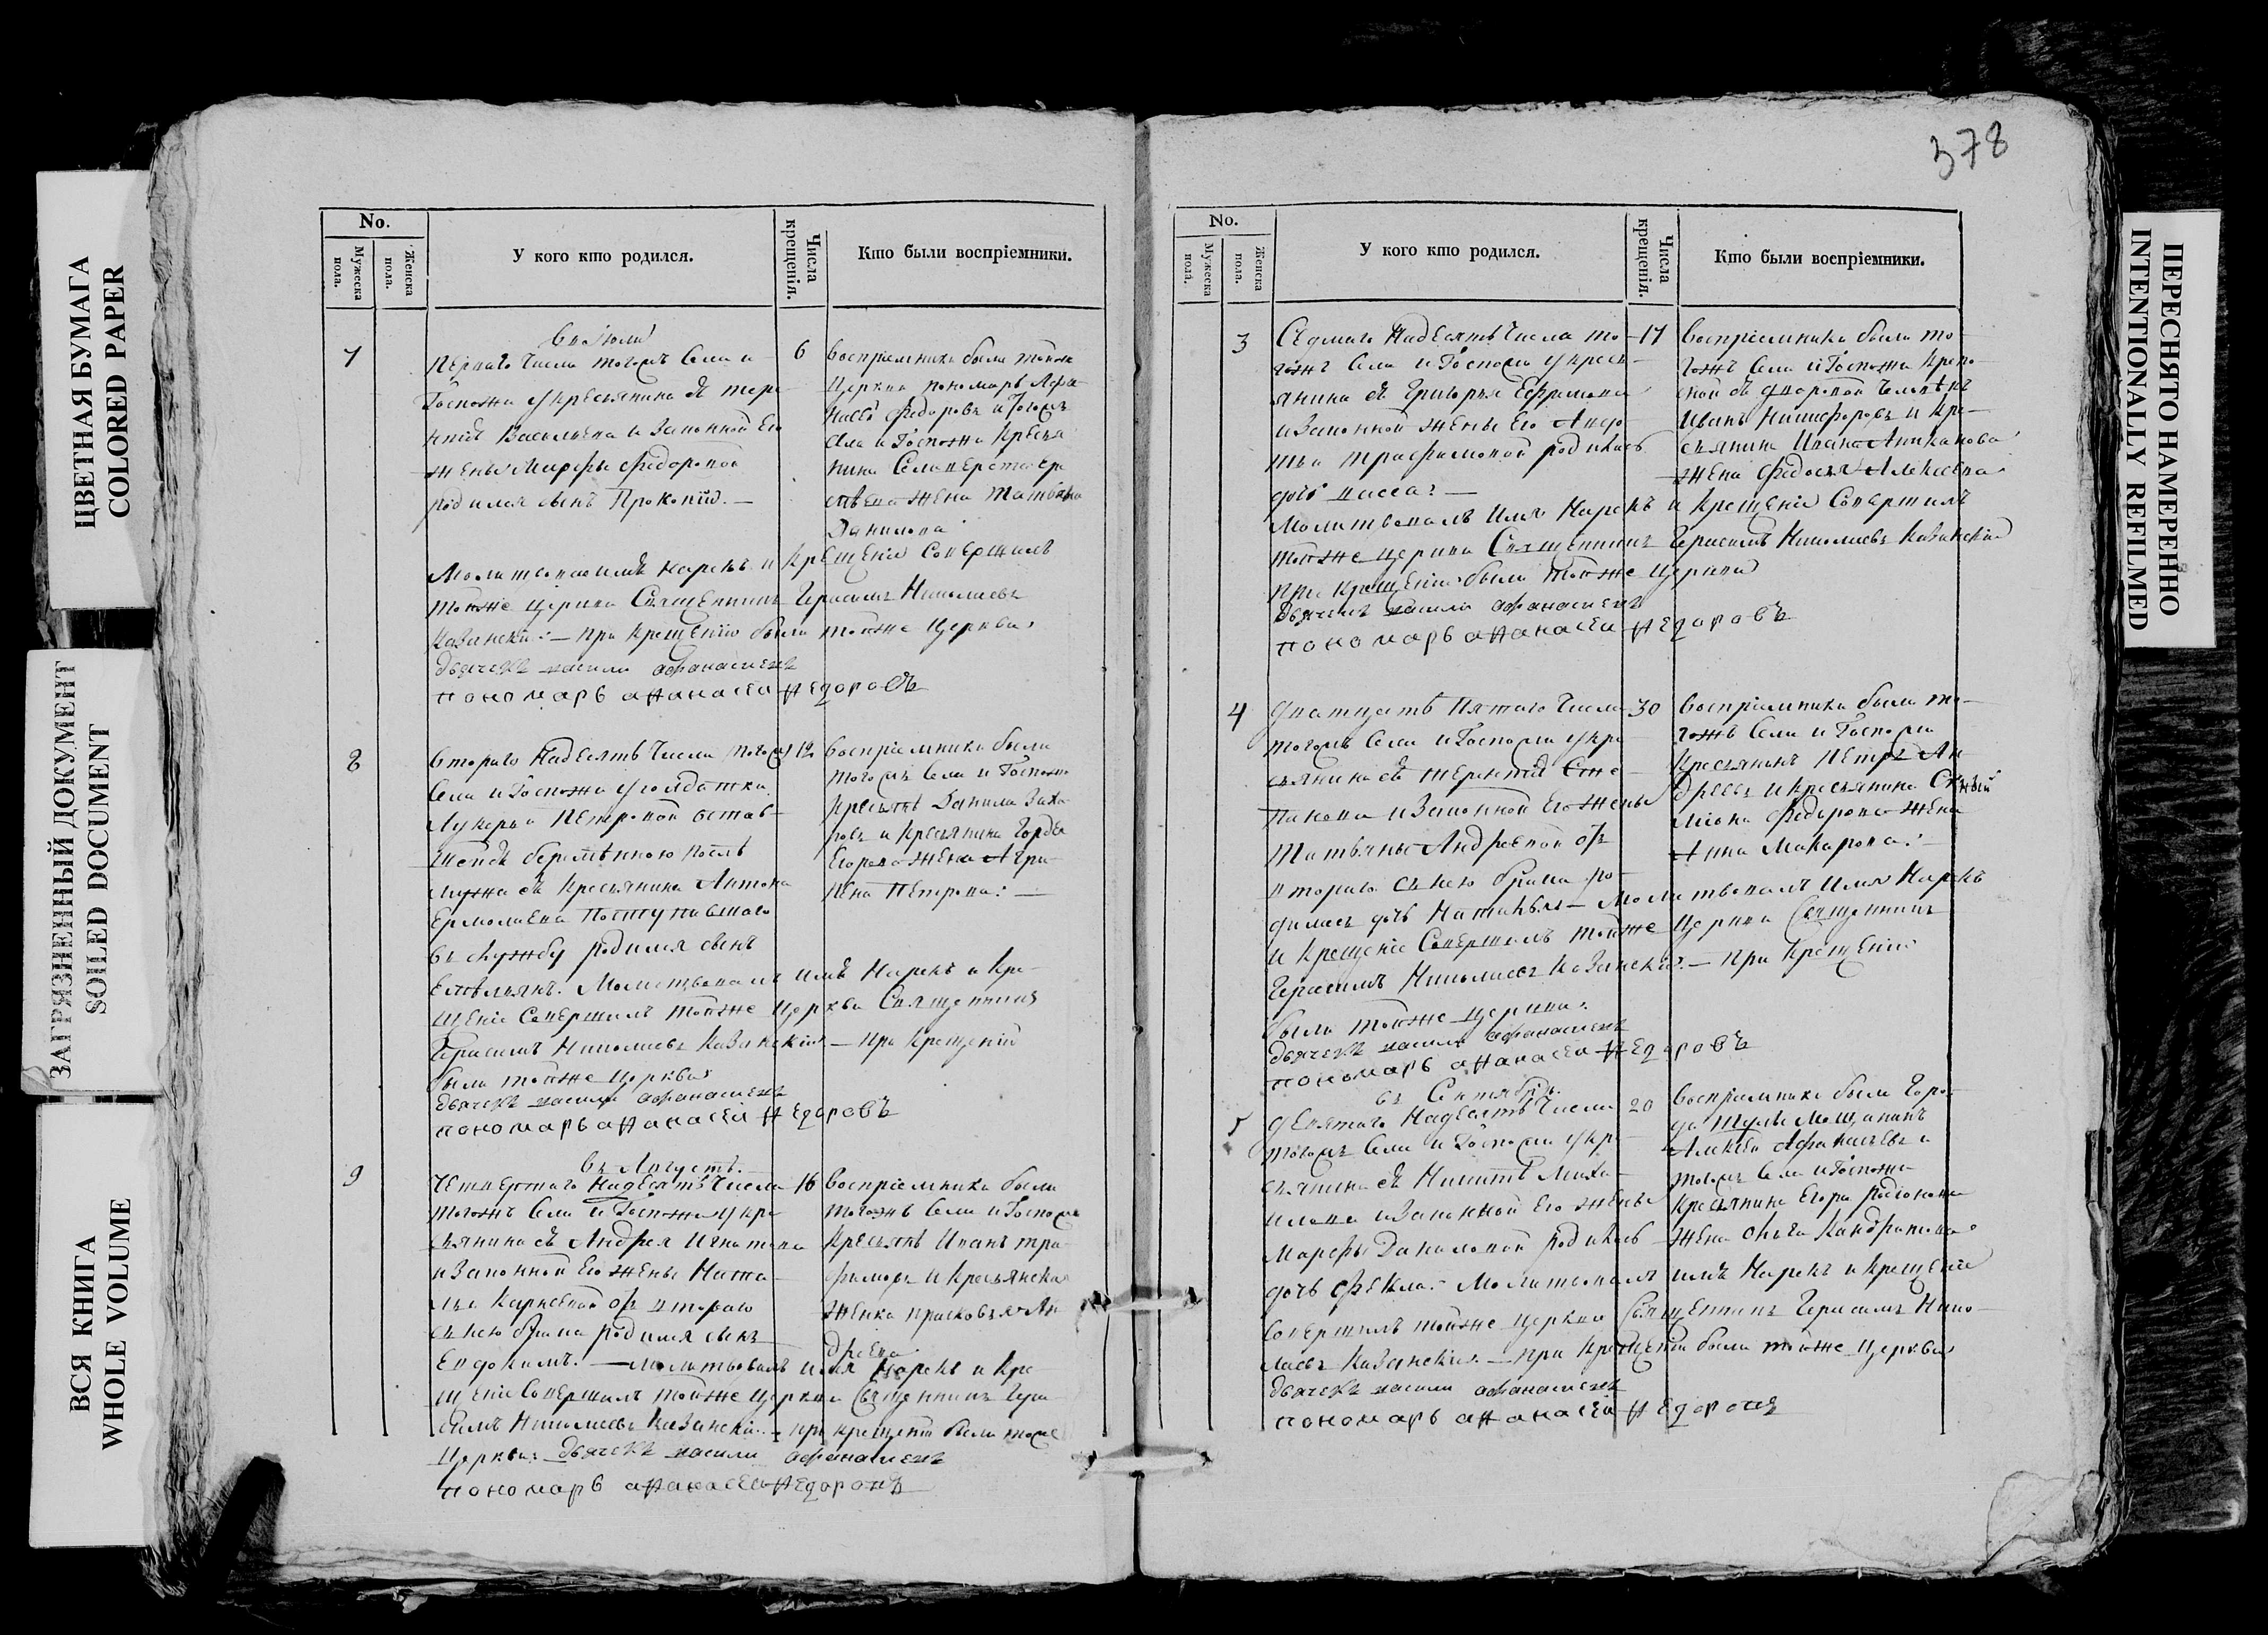 378
ЦВЕТНАЯ БУМАГА
COLORED PAPER
ЗАГРЯЗНЕННЫЙ ДОКУМЕНТ
SOILED DOCUMENT
ВСЯ КНИГА
WHOLE VOLUME
No.
Мужеска пола.
Женска пола.
У кого кто родился.
Числа крещенія.
Кто были воспріемники.
7
6
Перваго числа тогожъ села и
Госпожи у крестьянина
Васильева и законной Его
жены Марфы Федоровой
родился сынъ Прокопій. —
воспріемники были тойже
Церкви пономарь Афа-
насей Федоровъ и тогожъ
села и Госпожи
жена Татьяна
Данилова
Молитвовалъ имя нарекъ и крещеніе совершилъ
тойже церкви Священникъ Герасимъ Николаевъ
Казанскій: — при крещеніи были тойже Церкви
дьячекъ василй афанасьевъ
пономарь афанасей федоровъ
8
12
втораго Надесять числа тогожъ
села и Госпожи у солдатки
Лукерьи Петровой остав-
шейся беременною послѣ
мужа съ крестьянина Антона
Ермолаева поступившаго
въ службу родился сынъ
Емельянъ. Молитвовалъ имя Нарекъ и кре-
щеніе совершилъ тойже церкви Священникъ
Герасимъ Николаевъ Казанскій — при крещеніи
были тойже Церкви
дьячекъ василй афанасьевъ
пономарь афанасей федоровъ
воспріемники были
тогожъ села и Госпожи
Данила Заха-
ровъ и крестьянина Гордея
Егорова жена Агри-
пена Петрова: —
въ Августѣ.
9
16
Четвертаго Надесять числа
тогожъ села и Госпожи у кре-
стьянина Андрея Игнатова
и законной Его жены Ната-
льи Карнеевой отъ втораго
съ нею брака родился сынъ
Евдокимъ. — молитвовалъ имя нарекъ и кре
щеніе совершилъ тойже церкви Священникъ Гера
симъ Николаевъ Казанскій. — при крещеніи были тойже
Церкви: дьячекъ василй афанасьевъ
пономарь афанасей федоровъ
воспріемники были
тогожъ села и Госпожи
Иванъ Тро-
фимовъ и крестьянская
женка прасковья Ан
дреева
No.
Мужеска пола.
Женска пола.
У кого кто родился.
Числа крещенія.
Кто были воспріемники.
3
17
Седмаго Надесять числа то-
гожъ села и Госпожи у кресть-
янина Григорья Ефремова
и законной жены Его Авдо-
тьи Трофимовой родилась
дочь
Молитвовалъ имя Нарекъ и крещеніе совершилъ
тойже церкви Священникъ Герасимъ Николаевъ Казанскій
при крещеніи были тойже Церкви
дьячекъ василй афанасьевъ
пономарь афанасей федоровъ
воспріемники были то-
гожъ села и Госпожи
дворовой человѣкъ
Иванъ Никифоровъ и кре-
стьянина Ивана Аниканова
жена Федосья Алексеева
4
30
Дватцать пятаго числа
тогожъ села и Госпожи у кре-
стьянина Терентія Сте-
панова и законной Его жены
Татьяны Андреевой отъ
втораго съ нею брака ро-
дилась дочь Наталья — Молитвовалъ имя Нарекъ
и крещеніе совершилъ тойже Церкви Священникъ
Герасимъ Николаевъ Казанскій. — при крещеніи
были тойже церкви:
дьячекъ василй афанасьевъ
пономарь афанасей федоровъ
воспріемники были то-
гожъ села и Госпожи
крестьянинъ Петръ Ан
дреевъ и крестьянина
Федорова жена
Анна Макарова: —
въ Сентябрѣ.
5
20
девятаго Надесять числа
тогожъ села и Госпожи у кре-
стьянина Никиты Миха-
илова и законной Его жены
Марфы Даниловой родилась
дочь Фекла: — Молитвовалъ имя Нарекъ и крещеніе
совершилъ тойже церкви Священникъ Герасимъ Нико-
лаевъ Казанскій. — при крещеніи были тойже Церкви
дьячекъ василй афанасьевъ
пономарь афанасей федоровъ
воспріемники были Горо-
да Тулы Мещанинъ
Алексей Афанасьевъ и
тогожъ села и Госпожи
крестьянина Егора Родионова
жена Ольга Кандратова
ПЕРЕСНЯТО НАМЕРЕННО
INTENTIONALLY REFILMED